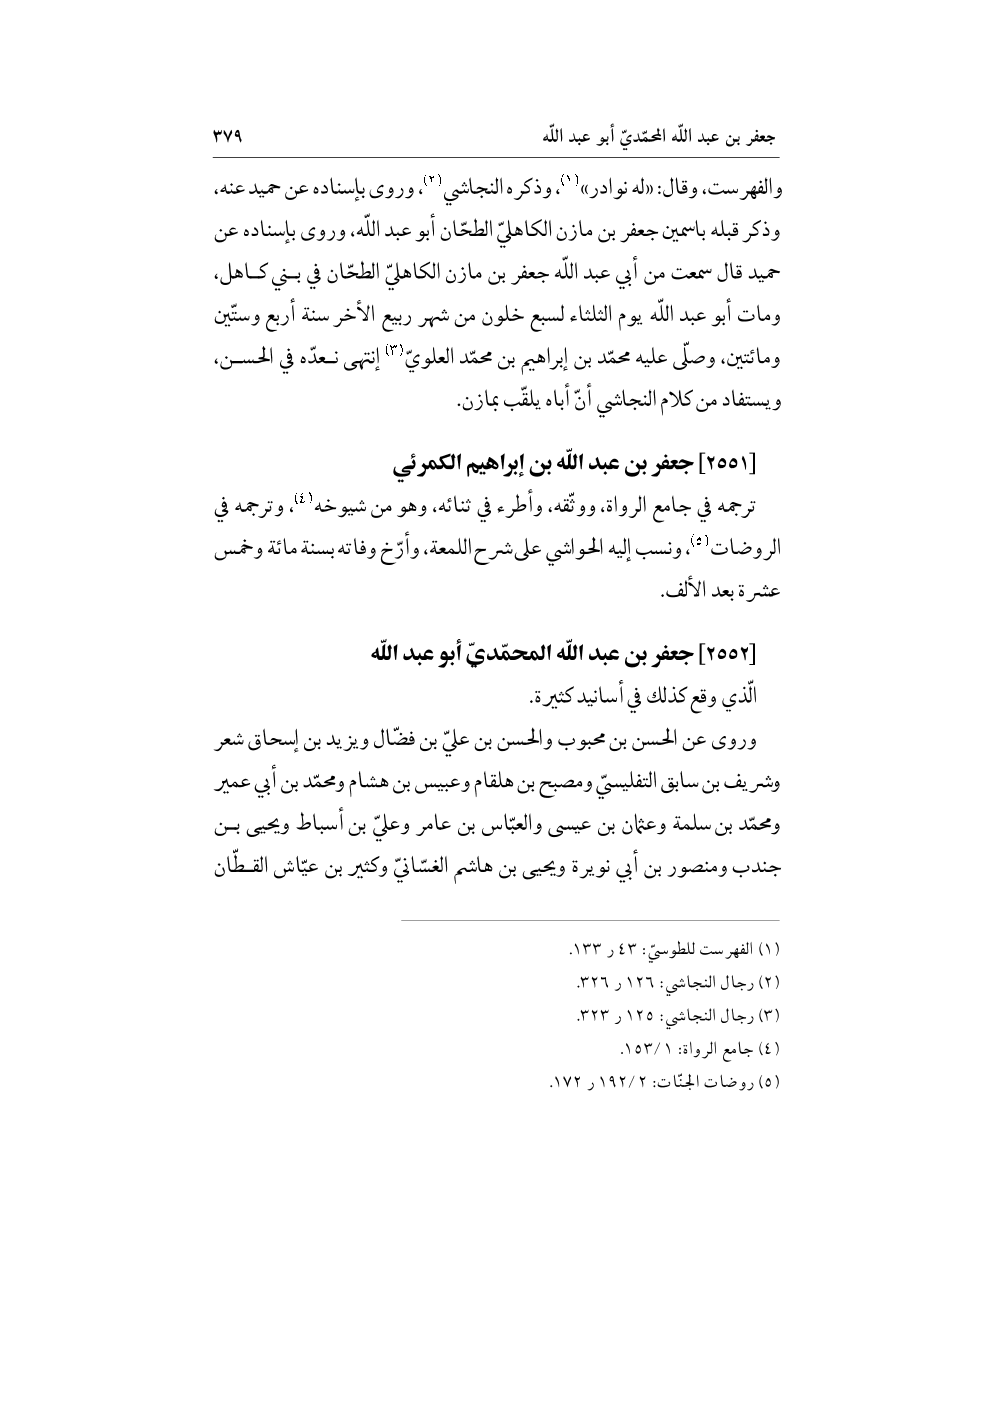 جعفر بن عبد اللّه المحمّديّ أبو عبد اللّه ٣٧٩
والفهرست، وقال: «له نوادر»(١)، وذكره النجاشي(٢)، وروى بإسناده عن حميد عنه،
وذكر قبله باسمين جعفر بن مازن الكاهليّ الطحّان أبو عبد اللّه، وروى بإسناده عن
حميد قال سمعت من أبي عبد اللّه جعفر بن مازن الكاهليّ الطحّان في بـني كـاهل،
ومات أبو عبد اللّه يوم الثلثاء لسبع خلون من شهر ربيع الأخر سنة أربع وستّين
ومائتين، وصلّى عليه محمّد بن إبراهيم بن محمّد العلويّ(٣) إنتهى نـعدّه في الحسـن،
ويستفاد من كلام النجاشي أنّ أباه يلقّب بمازن.
[٢٥٥١] جعفر بن عبد اللّه بن إبراهيم الكمرئي
ترجمه في جامع الرواة، ووثّقه، وأطرء في ثنائه، وهو من شيوخه(٤)، وترجمه في
الروضات(٥)، ونسب إليه الحواشي على شرح اللمعة، وأرّخ وفاته بسنة مائة وخمس
عشرة بعد الألف.
[٢٥٥٢] جعفر بن عبد اللّه المحمّديّ أبو عبد اللّه
الّذي وقع كذلك في أسانيد كثيرة.
وروى عن الحسن بن محبوب والحسن بن عليّ بن فضّال ويزيد بن إسحاق شعر
وشريف بن سابق التفليسيّ ومصبح بن هلقام وعبيس بن هشام ومحمّد بن أبي عمير
ومحمّد بن سلمة وعثمان بن عيسى والعبّاس بن عامر وعليّ بن أسباط ويحيى بـن
جندب ومنصور بن أبي نويرة ويحيى بن هاشم الغسّانيّ وكثير بن عيّاش القـطّان
(١) الفهرست للطوسيّ: ٤٣ ر ١٣٣.
(٢) رجال النجاشي: ١٢٦ ر ٣٢٦.
(٣) رجال النجاشي: ١٢٥ ر ٣٢٣.
(٤) جامع الرواة: ١ /١٥٣.
(٥) روضات الجنّات: ٢ /١٩٢ ر ١٧٢.